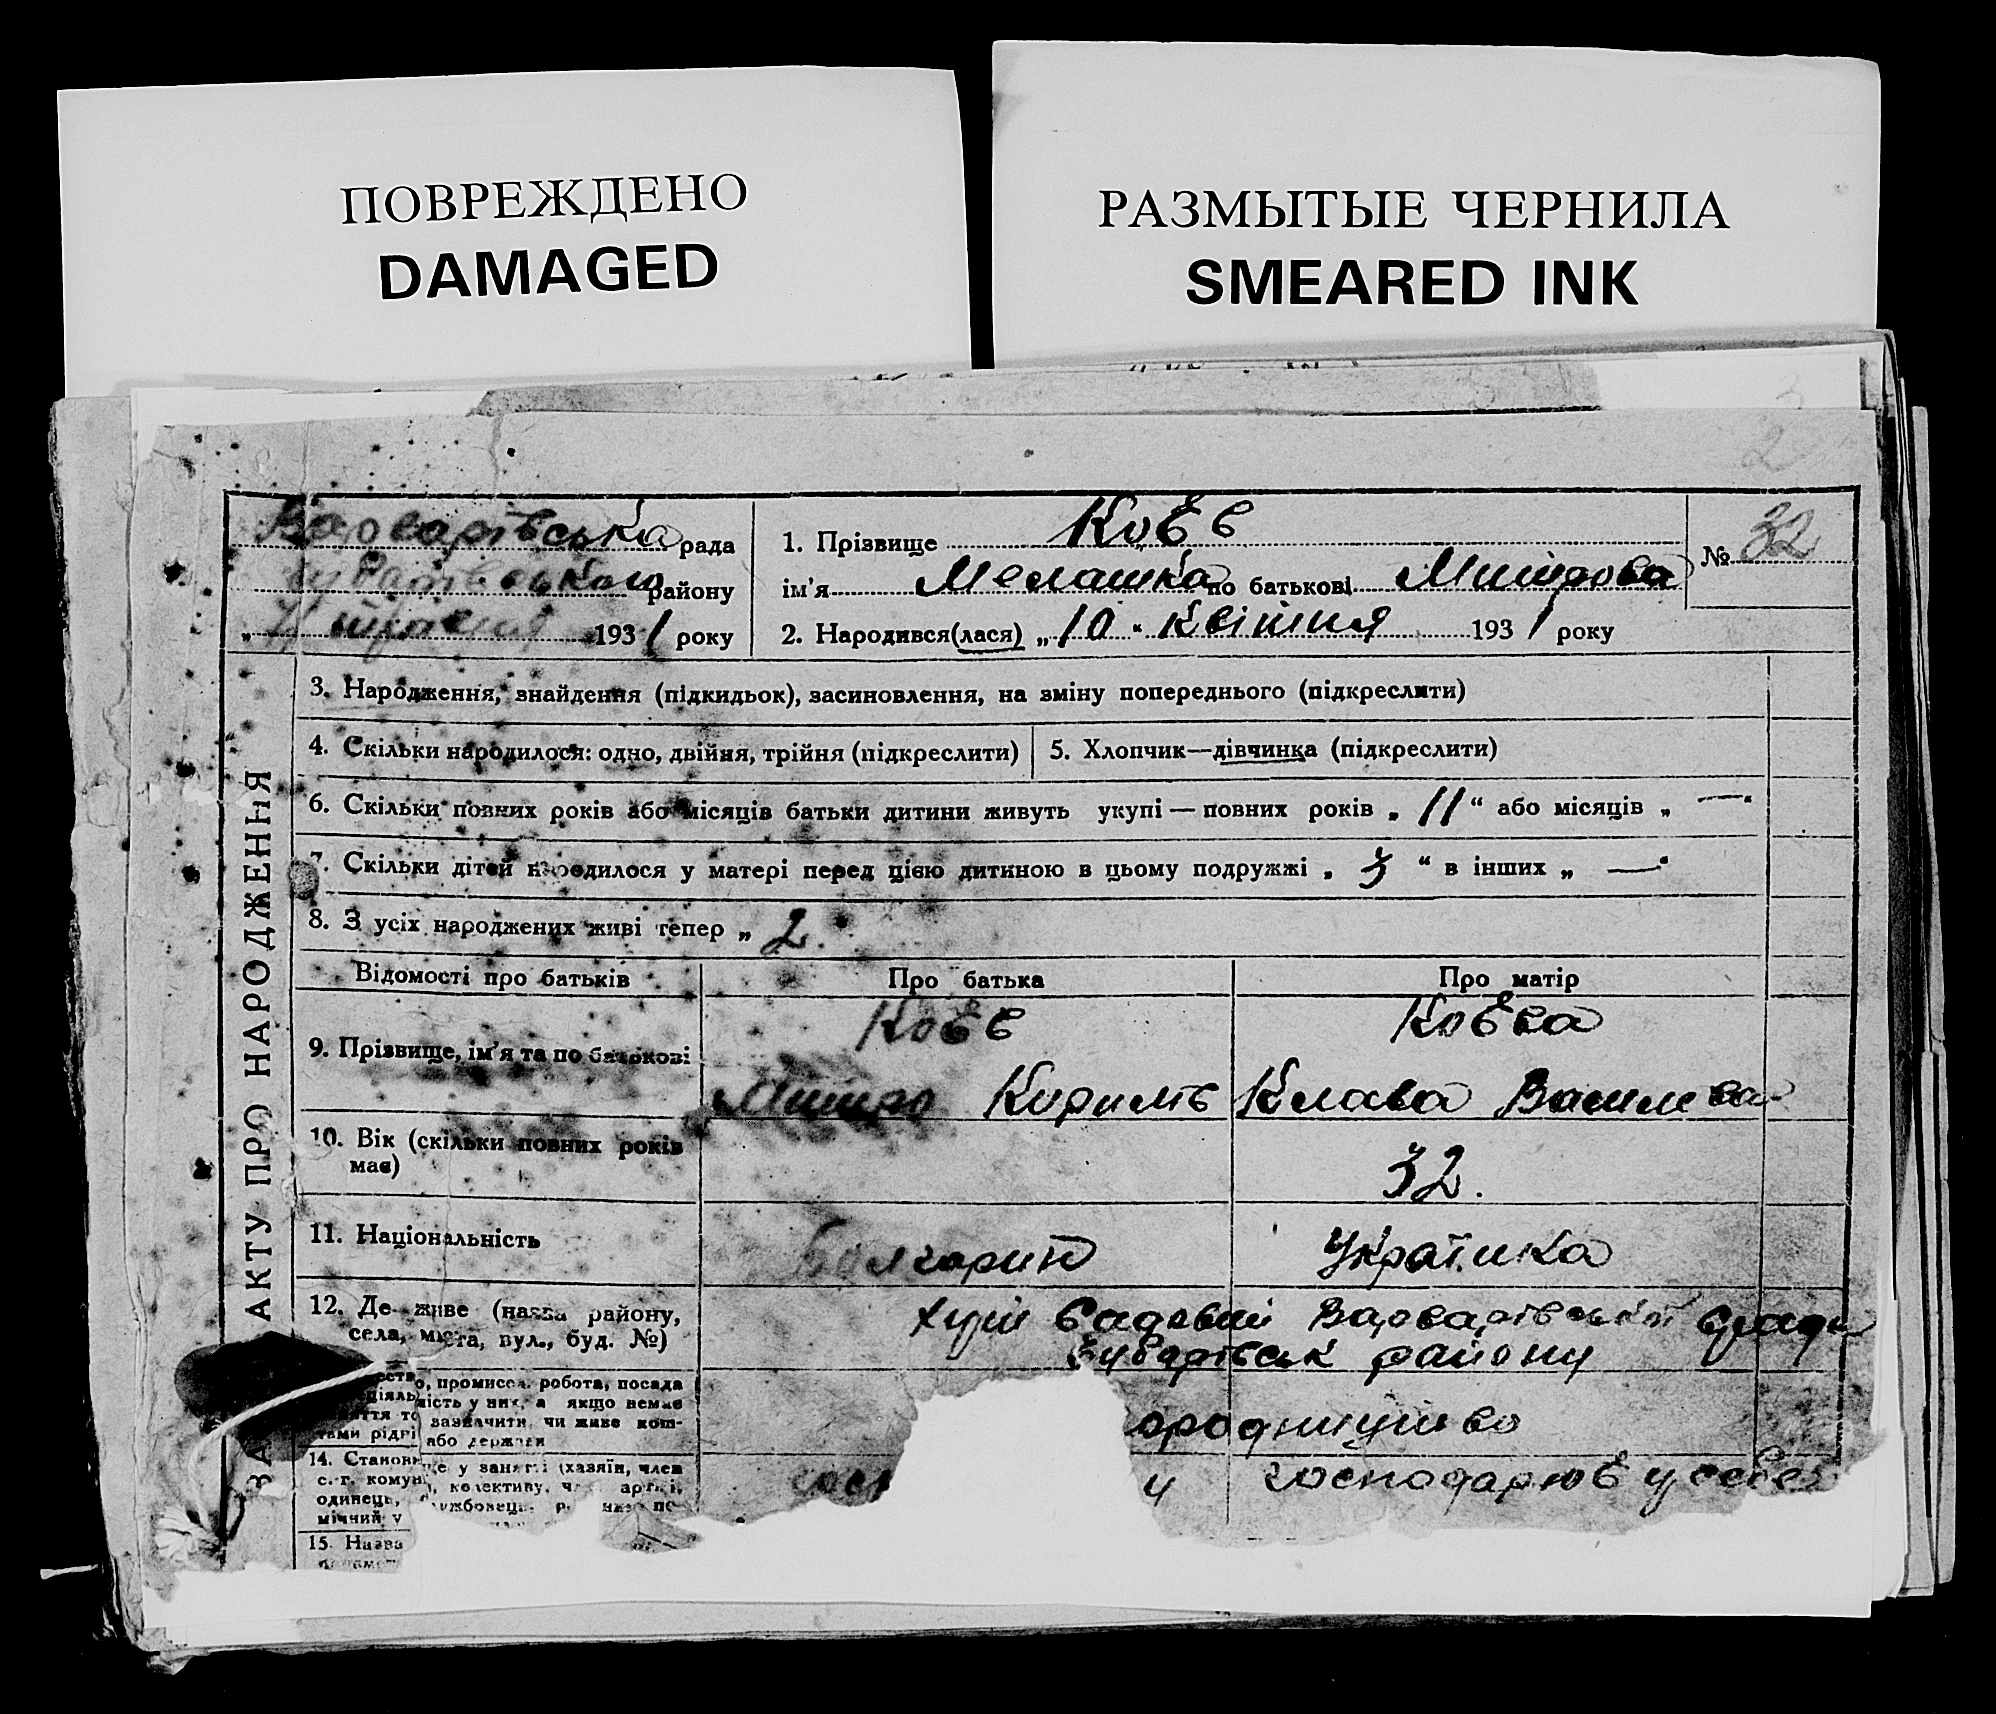 ПОВРЕЖДЕНО
DAMAGED
РАЗМЫТЫЕ ЧЕРНИЛА
SMEARED INK
2
Варварівська рада
району
„ 193 1 року
1. Прізвище Коєв
ім'я Мелашка по батькові Митрова
2. Народився(лася) „ 10 “ квітня 193 1 року
№ 32
АКТУ ПРО НАРОДЖЕННЯ
3. Народження, знайдення (підкидьок), засиновлення, на зміну попереднього (підкреслити)
4. Скільки народилося: одно, двійня, трійня (підкреслити)
5. Хлопчик—дівчинка (підкреслити)
6. Скільки повних років або місяців батьки дитини живуть укупі — повних років „ 11 “ або місяців „ — “
7. Скільки дітей народилося у матері перед цією дитиною в цьому подружжі „ 3 “ в інших „ — “
8. З усіх народжених живі тепер „ 2.
Відомості про батьків
Про батька
Про матір
9. Прізвище, ім'я та по батькові
Коєв
Митро Кирилів
Коєва
Клава Василева
10. Вік (скільки повних років
має)
32.
11. Національність
Болгарин
Українка
12. Де живе (назва району,
села, міста, вул., буд. №)
хутір Садовий Варварівської с/ради
району
промисел, робота, посада
ість у них, а якщо немає
зазначити, чи живе кош-
тами рідні або держави
ородництво
14. Становище у занятті (хазяїн, член
с.-г. комуни, колективу,
одинець,
мічний у
госп
господарює у себе
15. Назва